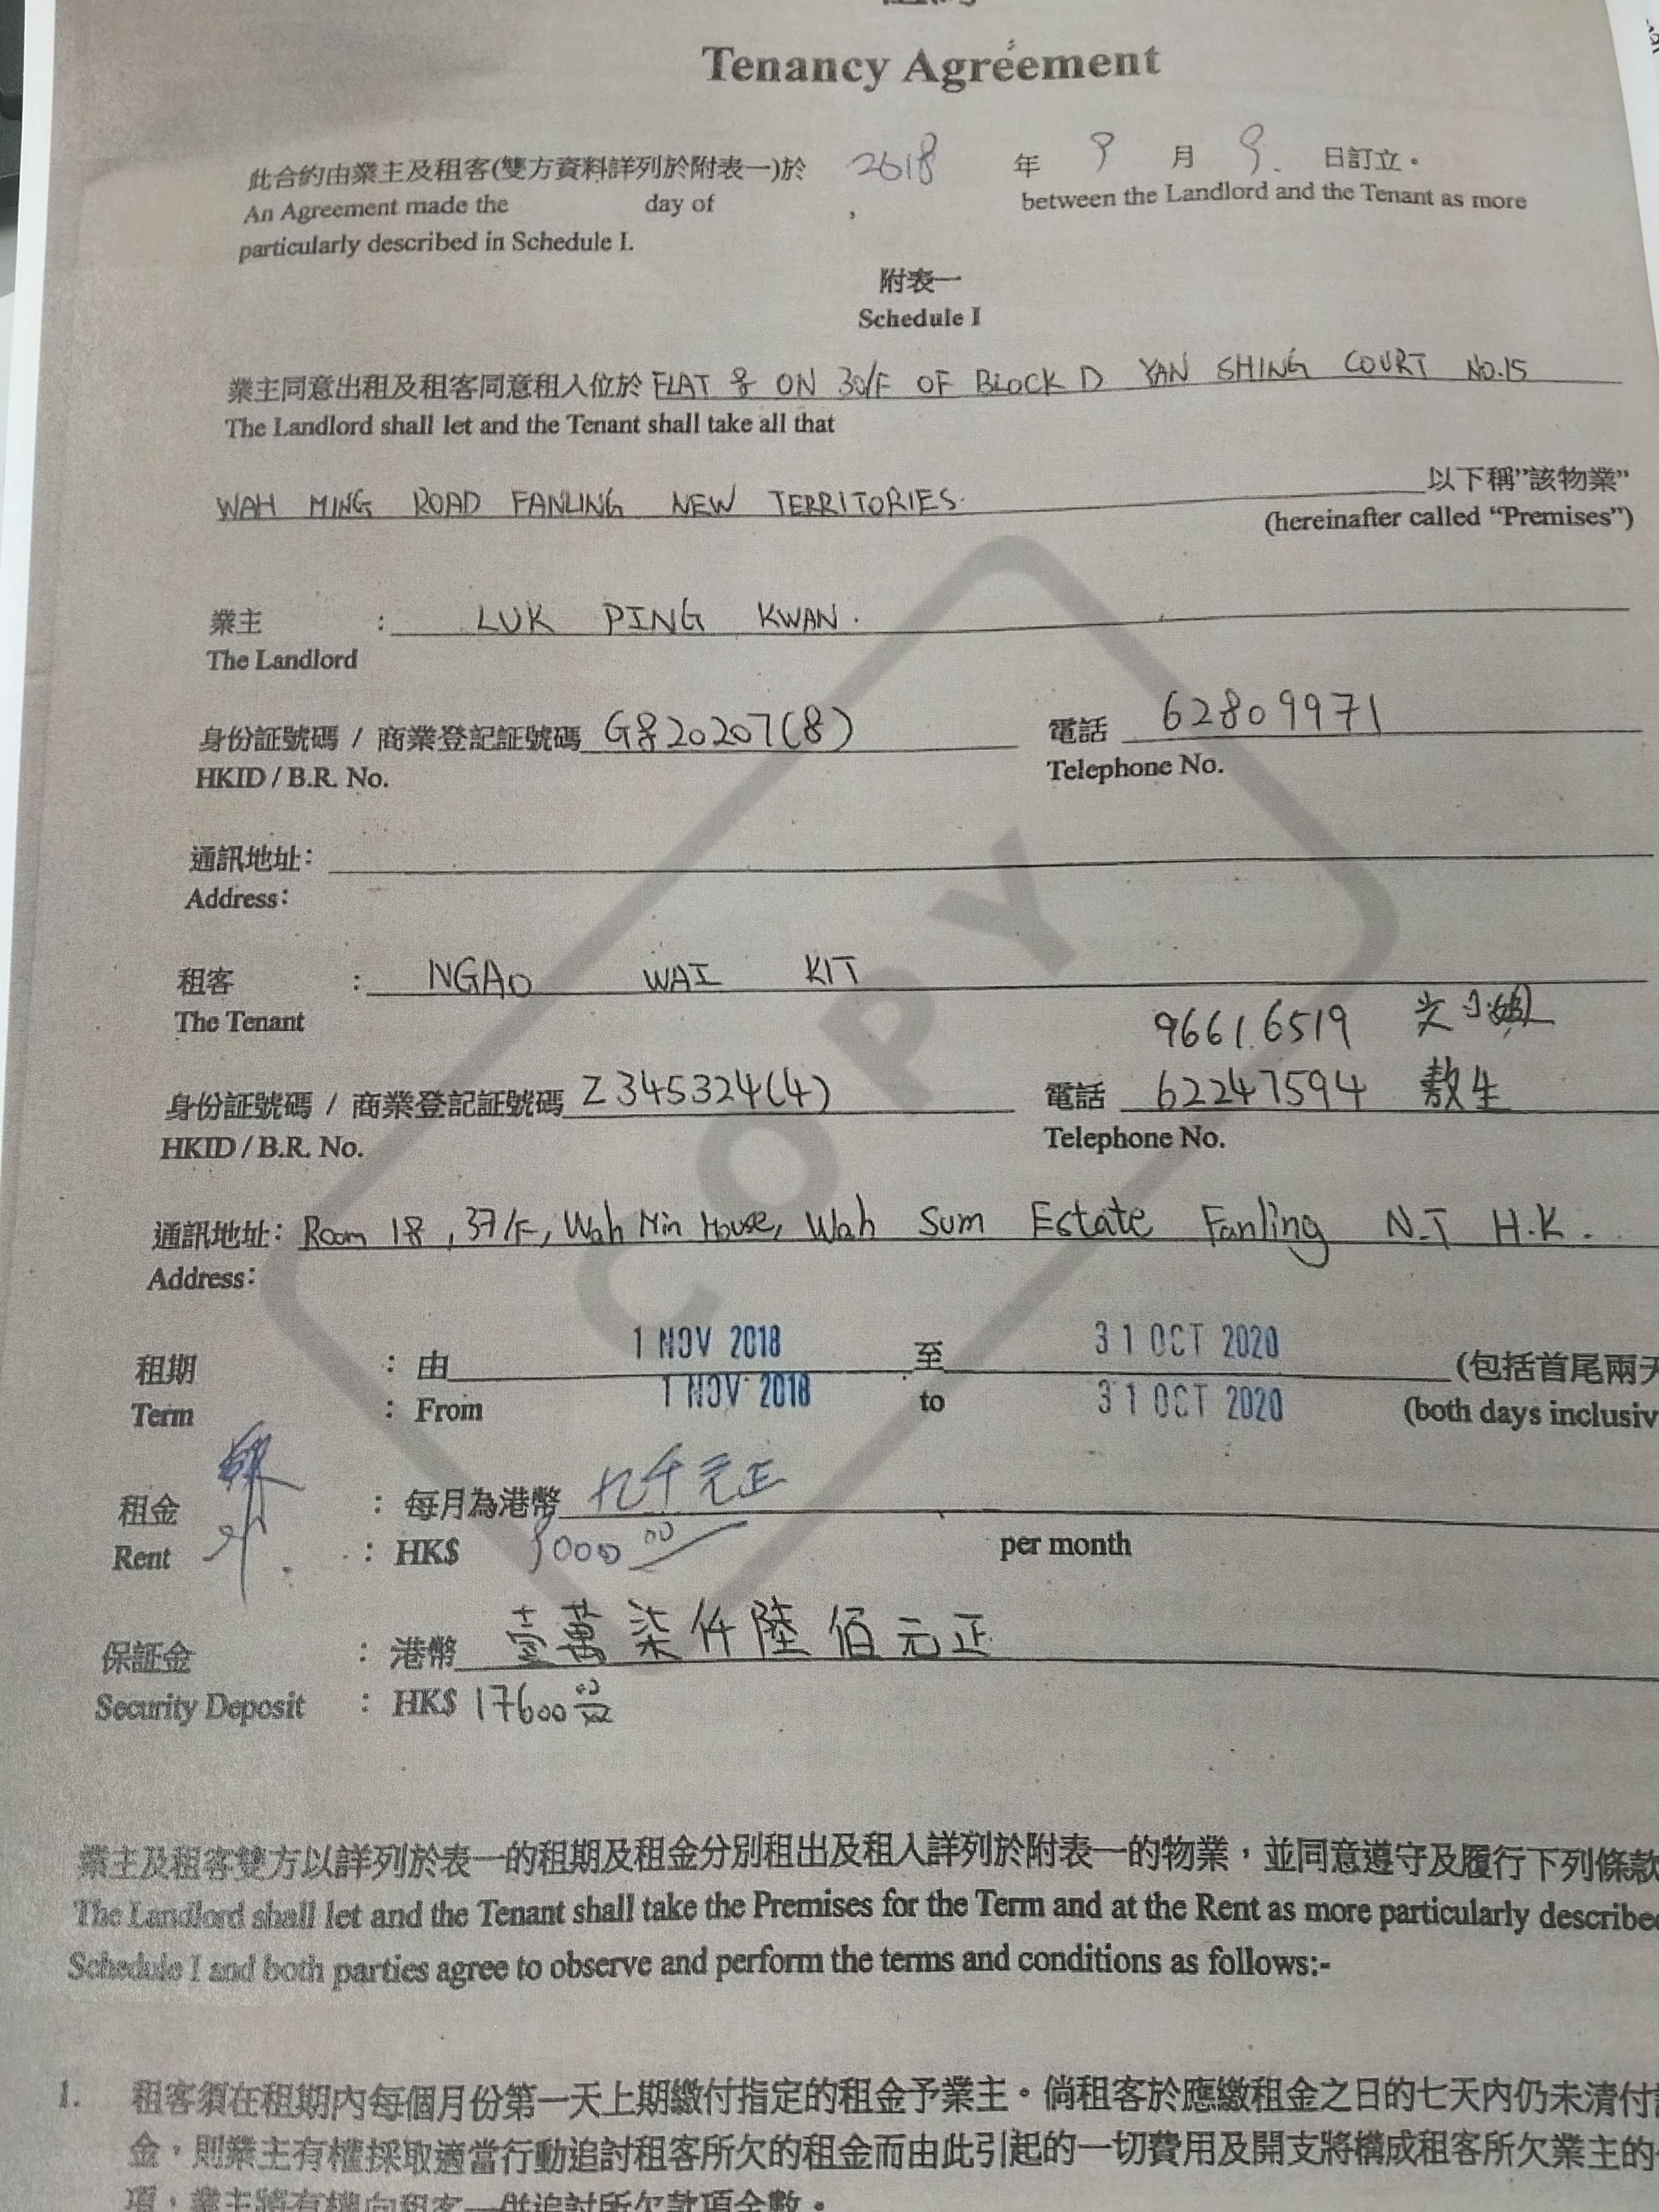 Tenancy Agreement
此合約由業主及租客(雙方資料詳列於附表一)於 2018 年 9 月 9. 日訂立。
An Agreement made the day of , between the Landlord and the Tenant as more
particularly described in Schedule I.
附表一
Schedule I
業主同意出租及租客同意租入位於 FLAT 8 ON 30/F OF BLOCK D YAN SHING COURT NO.15
The Landlord shall let and the Tenant shall take all that
WAH MING ROAD FANLING NEW TERRITORIES. 以下稱”該物業”
(hereinafter called “Premises”)
業主 : LUK PING KWAN.
The Landlord
身份証號碼 / 商業登記証號碼 G820207(8) 電話 62809971
HKID / B.R. No. Telephone No.
通訊地址:
Address:
租客 : NGAO WAI KIT
The Tenant
9661 6519
身份証號碼 / 商業登記証號碼 Z345324(4) 電話 62247594 敖生
HKID / B.R. No. Telephone No.
通訊地址: Room 18, 37/F, Wah Min House, Wah Sum Estate Fanling N.T H.K.
Address:
租期 : 由 1 NOV 2018 至 31 OCT 2020 (包括首尾兩天
Term : From 1 NOV 2018 to 31 OCT 2020 (both days inclusiv
租金 : 每月為港幣 九千元正
Rent : HK$ 9000.00 per month
保証金 : 港幣 壹萬柒仟陸佰元正
Security Deposit : HK$ 17600.00
業主及租客雙方以詳列於表一的租期及租金分別租出及租入詳列於附表一的物業，並同意遵守及履行下列條款
The Landlord shall let and the Tenant shall take the Premises for the Term and at the Rent as more particularly described
Schedule I and both parties agree to observe and perform the terms and conditions as follows:-
1. 租客須在租期內每個月份第一天上期繳付指定的租金予業主。倘租客於應繳租金之日的七天內仍未清付
金，則業主有權採取適當行動追討租客所欠的租金而由此引起的一切費用及開支將構成租客所欠業主的
項，業主將有權向租客一併追討所欠款項全數。
COPY